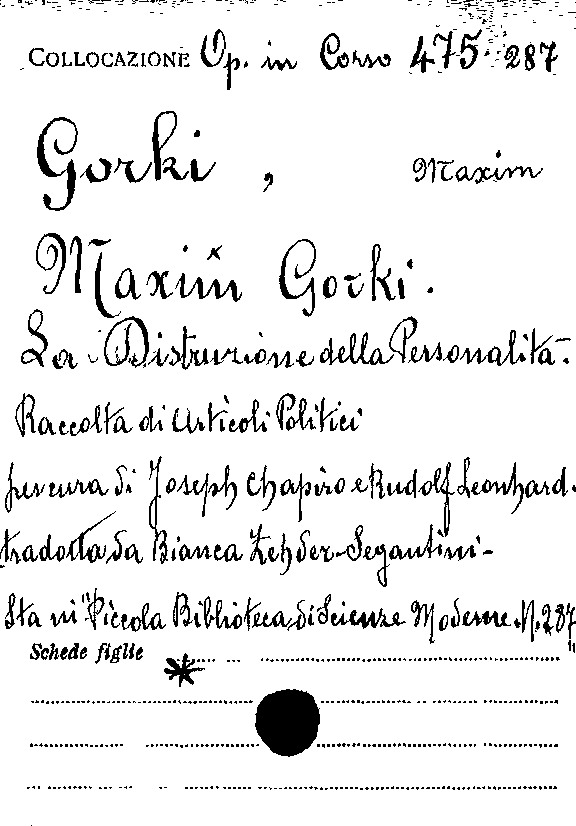 COLLOCAZIONE Op. in Corso 475. 287
Gorki, Maxim
Maxim Gorki.
La Distruzione della Personalità.
Raccolta di Articoli Politici
per cura di Joseph Chapiro e Rudolf Leonhard.
tradotta da Bianca Zehder-Segantini-
Sta in "Piccola Biblioteca di Scienze Moderne N. 287"
Schede figlie *